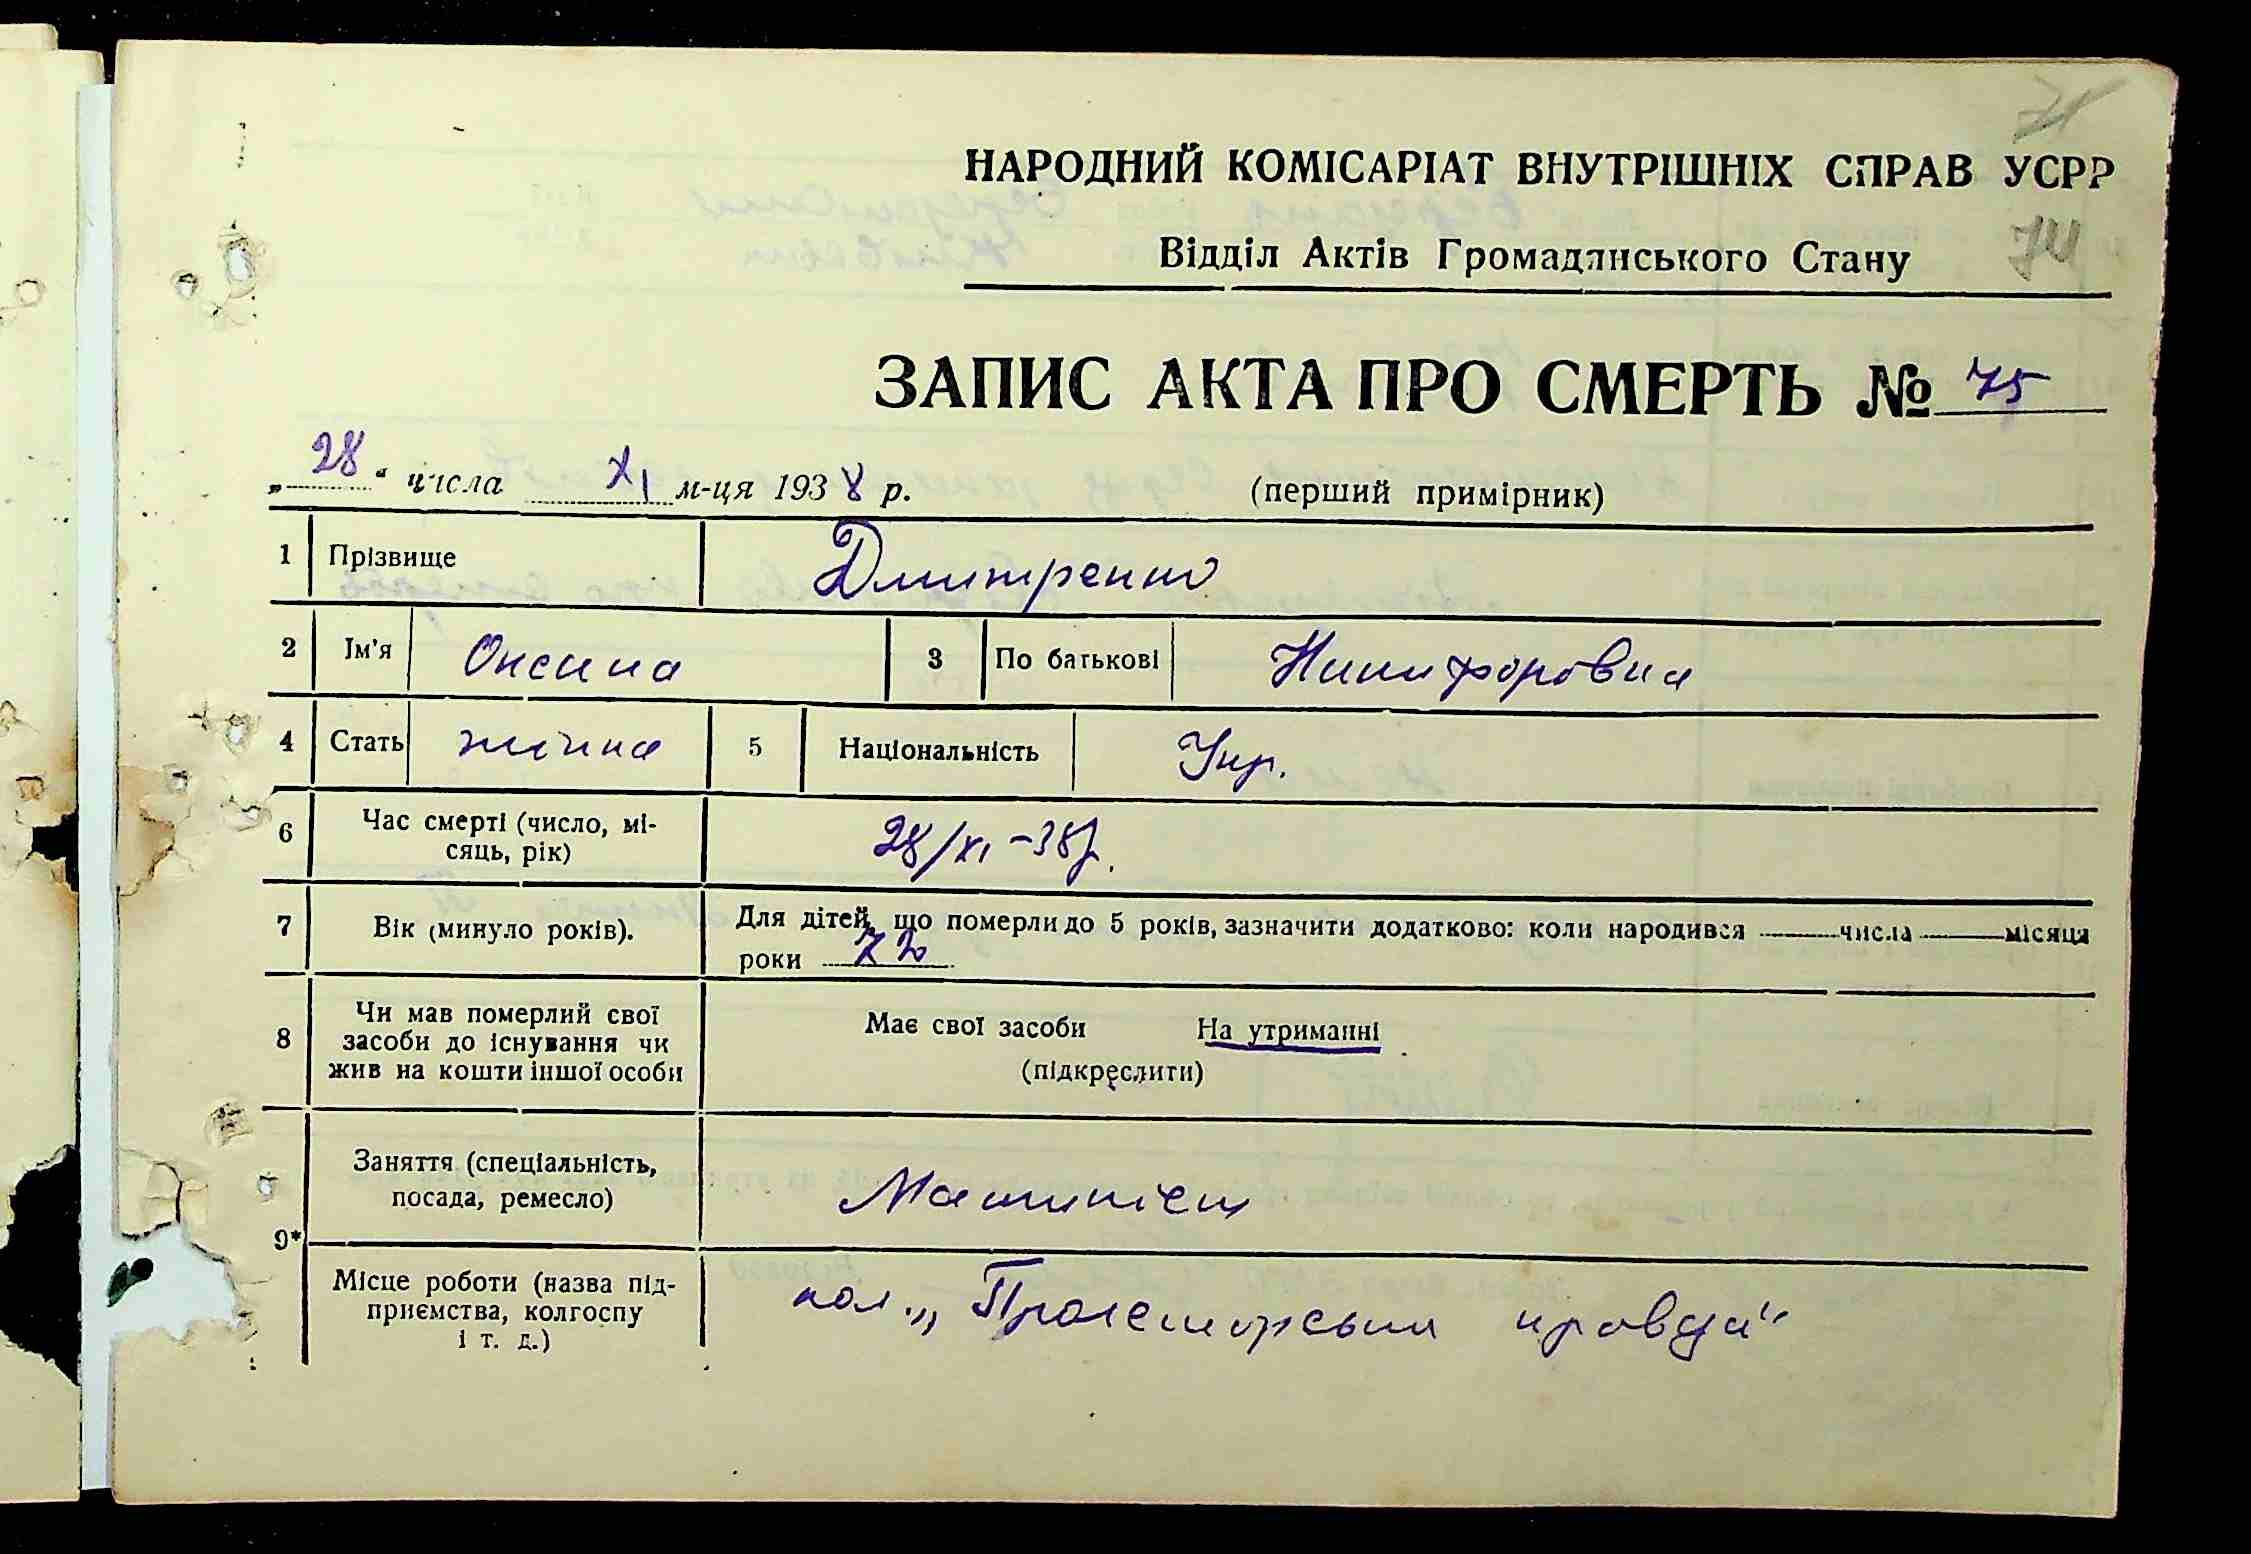 71
НАРОДНИЙ КОМІСАРІАТ ВНУТРІШНІХ СПРАВ УСРР
Відділ Актів Громадянського Стану
74
ЗАПИС АКТА ПРО СМЕРТЬ № 75
„28“ числа XI м-ця 1938 р. (перший примірник)
1 Прізвище Дмитренко
2 Ім'я Оксана 3 По батькові Никифоровна
4 Стать жіноча 5 Національність Укр.
6 Час смерті (число, мі-
сяць, рік) 28/XI-38р.
7 Вік (минуло років). Для дітей, що померли до 5 років, зазначити додатково: коли народився числа місяця
роки 72
8 Чи мав померлий свої
засоби до існування чи
жив на кошти іншої особи
Має свої засоби На утриманні
(підкреслити)
9*
Заняття (спеціальність,
посада, ремесло)
Місце роботи (назва під-
приємства, колгоспу
і т. д.)
кол. „Пролетарська правда“